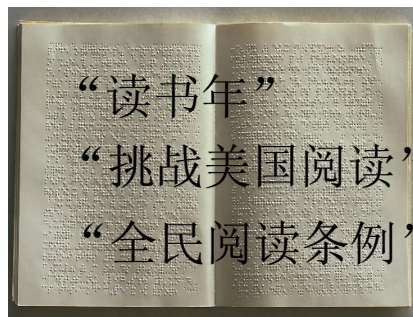 “读书年”
“挑战美国阅读’
“全民阅读条例’